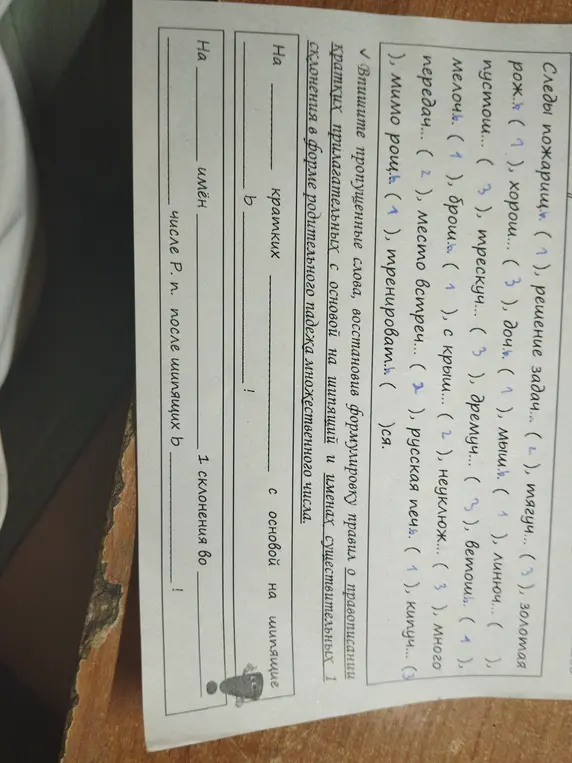 Следы пожарищ.ь ( 1 ), решение задач... ( 2 ), тягуч... ( 3 ), золотая
рож.ь ( 1 ), хорош... ( 3 ), доч.ь ( 1 ), мыш.ь ( 1 ), линюч... ( ),
пустош... ( 3 ), трескуч... ( 3 ), дремуч... ( 3 ), ветош.ь ( 1 ),
мелоч.ь ( 1 ), брош.ь ( 1 ), с крыш... ( 2 ), неуклюж... ( 3 ), много
передач... ( 2 ), место встреч... ( 2 ), русская печ.ь ( 1 ), кипуч... (3
), мимо рощ.ь ( 1 ), тренироват.ь ( )ся.
✓ Впишите пропущенные слова, восстановив формулировку правил о правописании
кратких прилагательных с основой на шипящий и именах существительных 1
склонения в форме родительного падежа множественного числа.
На ________ кратких ________ с основой на шипящие
________ ь ________ !
На ________ имён ________ 1 склонения во ________
________ числе Р. п. после шипящих ь ________ !